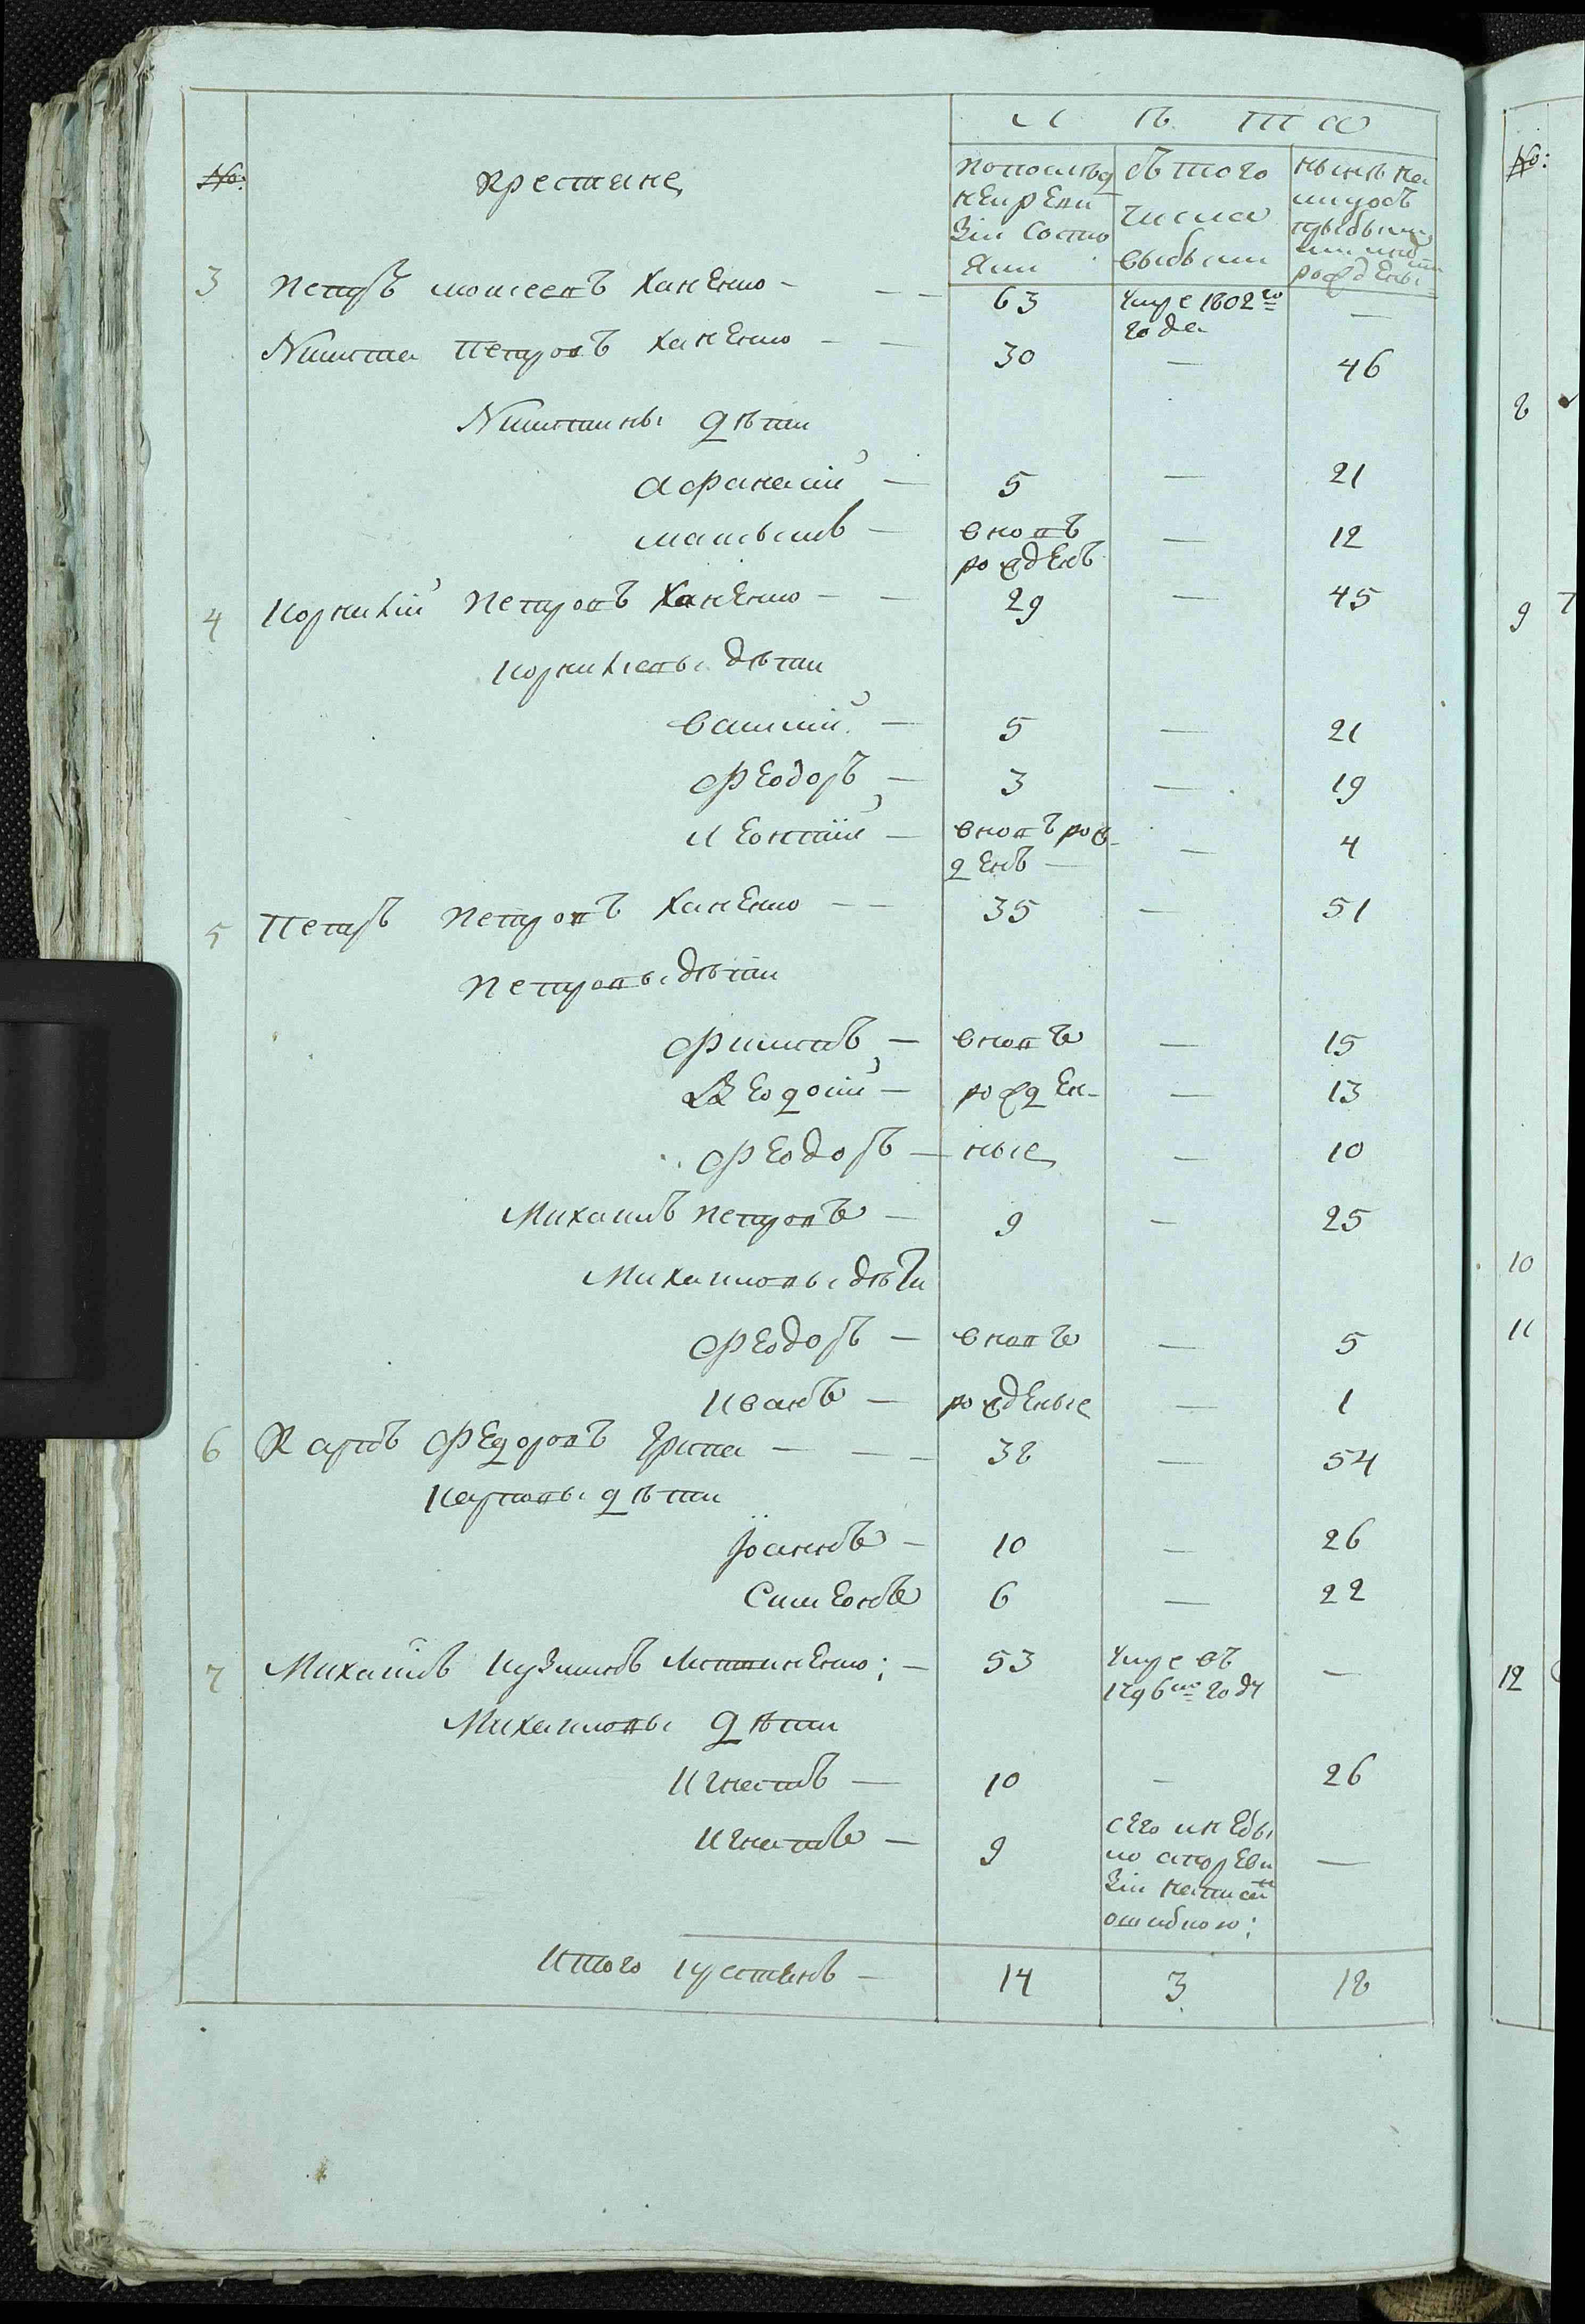 Л Ѣ Т А
№: Крестьяне По последней ревизіи состояли Съ того числа выбыли Нынѣ на лицо съ прибылыми и рожденными
3 Петръ Моисеевъ Ханенко — 63 умре 1802го года —
Никита Петровъ Ханенко — 30 — 46
Никитины дѣти
Афанасій — 5 — 21
вновь рожденъ — 12
4 Корнилій Петровъ Ханенко — 29 — 45
Корниліевы дѣти
Василій — 5 — 21
Феодоръ — 3 — 19
Леонтій — вновь рожденъ — 4
5 Петръ Петровъ Ханенко — 35 — 51
Петровы дѣти
Филипъ — вновь — 15
Ѳеодосій — рожден- — 13
Феодоръ — ные — 10
Михаилъ Петровъ — 9 — 25
Михаиловы дѣти
Феодоръ — вновь — 5
Иванъ — рожденые — 1
6 Карпъ Федоровъ — 38 — 54
Карповы дѣти
Іоаннъ — 10 — 26
Симеонъ 6 — 22
7 Михаилъ Кузминъ ; — 53 умре въ 1796мъ году —
Михаиловы дѣти
Игнатъ — 10 — 26
Игнатъ — 9 сего и не было а по ревизіи написанъ ошибкою; —
Итого крестьянъ — 14 3 18
№:
8
9
10
11
12